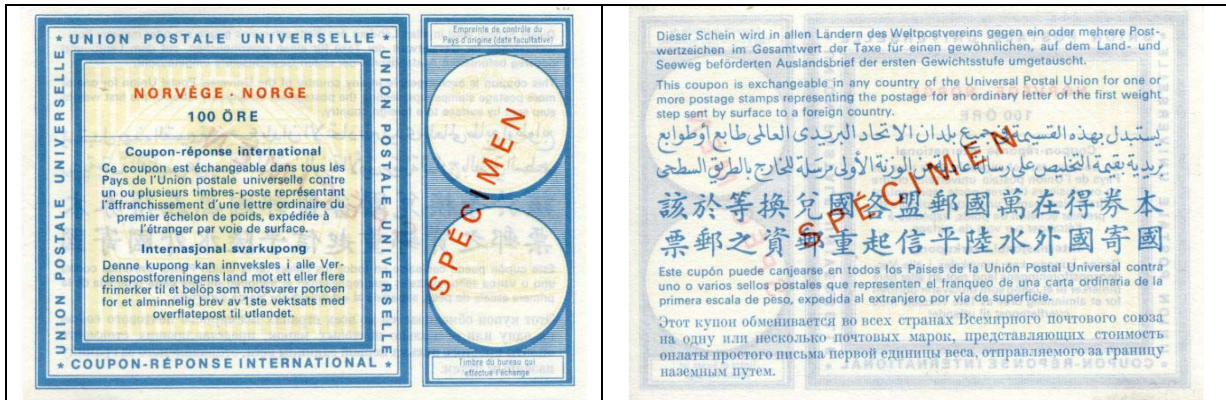 * UNION POSTALE UNIVERSELLE *
UNION POSTALE UNIVERSELLE
UNION POSTALE UNIVERSELLE
NORVÈGE · NORGE
100 ÖRE
Coupon-réponse international
Ce coupon est échangeable dans tous les
Pays de l'Union postale universelle contre
un ou plusieurs timbres-poste représentant
l'affranchissement d'une lettre ordinaire du
premier échelon de poids, expédiée à
l'étranger par voie de surface.
Internasjonal svarkupong
Denne kupong kan innveksles i alle Ver-
denspostforeningens land mot ett eller flere
frimerker til et beløp som motsvarer portoen
for et alminnelig brev av 1ste vektsats med
overflatepost til utlandet.
* COUPON-RÉPONSE INTERNATIONAL *
Empreinte de contrôle du
Pays d'origine (date facultative)
SPÉCIMEN
Timbre du bureau qui
effectue l'échange
Dieser Schein wird in allen Ländern des Weltpostvereins gegen ein oder mehrere Post-
wertzeichen im Gesamtwert der Taxe für einen gewöhnlichen, auf dem Land- und
Seeweg beförderten Auslandsbrief der ersten Gewichtsstufe umgetauscht.
This coupon is exchangeable in any country of the Universal Postal Union for one or
more postage stamps representing the postage for an ordinary letter of the first weight
step sent by surface to a foreign country.
يستبدل بهذه القسيمة فى جميع بلدان الاتحاد البريدى العالمى طابع أو طوابع
بريدية بقيمة التخليص على رسالة عادية من الوزنة الأولى مرسلة للخارج بالطريق السطحى
本券得在萬國郵盟各國兌換等於該
國寄國外水陸平信起重郵資之郵票
Este cupón puede canjearse en todos los Países de la Unión Postal Universal contra
uno o varios sellos postales que representen el franqueo de una carta ordinaria de la
primera escala de peso, expedida al extranjero por vía de superficie.
Этот купон обменивается во всех странах Всемирного почтового союза
на одну или несколько почтовых марок, представляющих стоимость
оплаты простого письма первой единицы веса, отправляемого за границу
наземным путем.
SPÉCIMEN